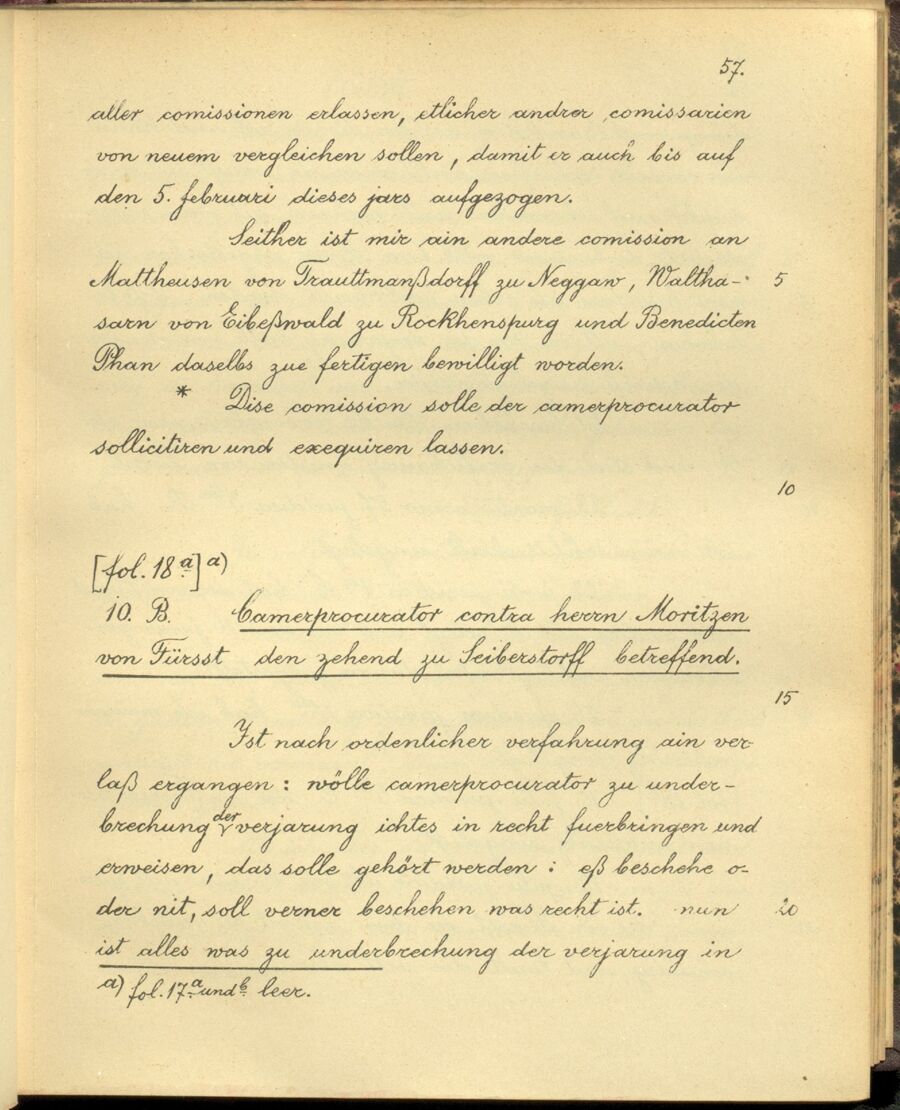 57.
aller comissionen erlassen, etlicher andrer comissarien
von neuem vergleichen sollen, damit er auch bis auf
den 5. februari dieses jars aufgezogen.
Seither ist mir ain andere comission an
Mattheusen von Trauttmanßdorff zu Neggaw, Waltha- 5
sarn von Eibeßwald zu Rockhenspurg und Benedicten
Phan daselbs zue fertigen bewilligt worden.
* Dise comission solle der camerprocurator
sollicitiren und exequiren lassen.
10
[fol. 18 a] a)
10. B. Camerprocurator contra herrn Moritzen
von Fürsst den zehend zu Seiberstorff betreffend.
15
Ist nach ordenlicher verfahrung ain ver-
laß ergangen: wölle camerprocurator zu under-
brechung der verjarung ichtes in recht fuerbringen und
erweisen, das solle gehört werden: eß beschehe o-
der nit, soll verner beschehen was recht ist. nun 20
ist alles was zu underbrechung der verjarung in
a) fol. 17 a und b leer.